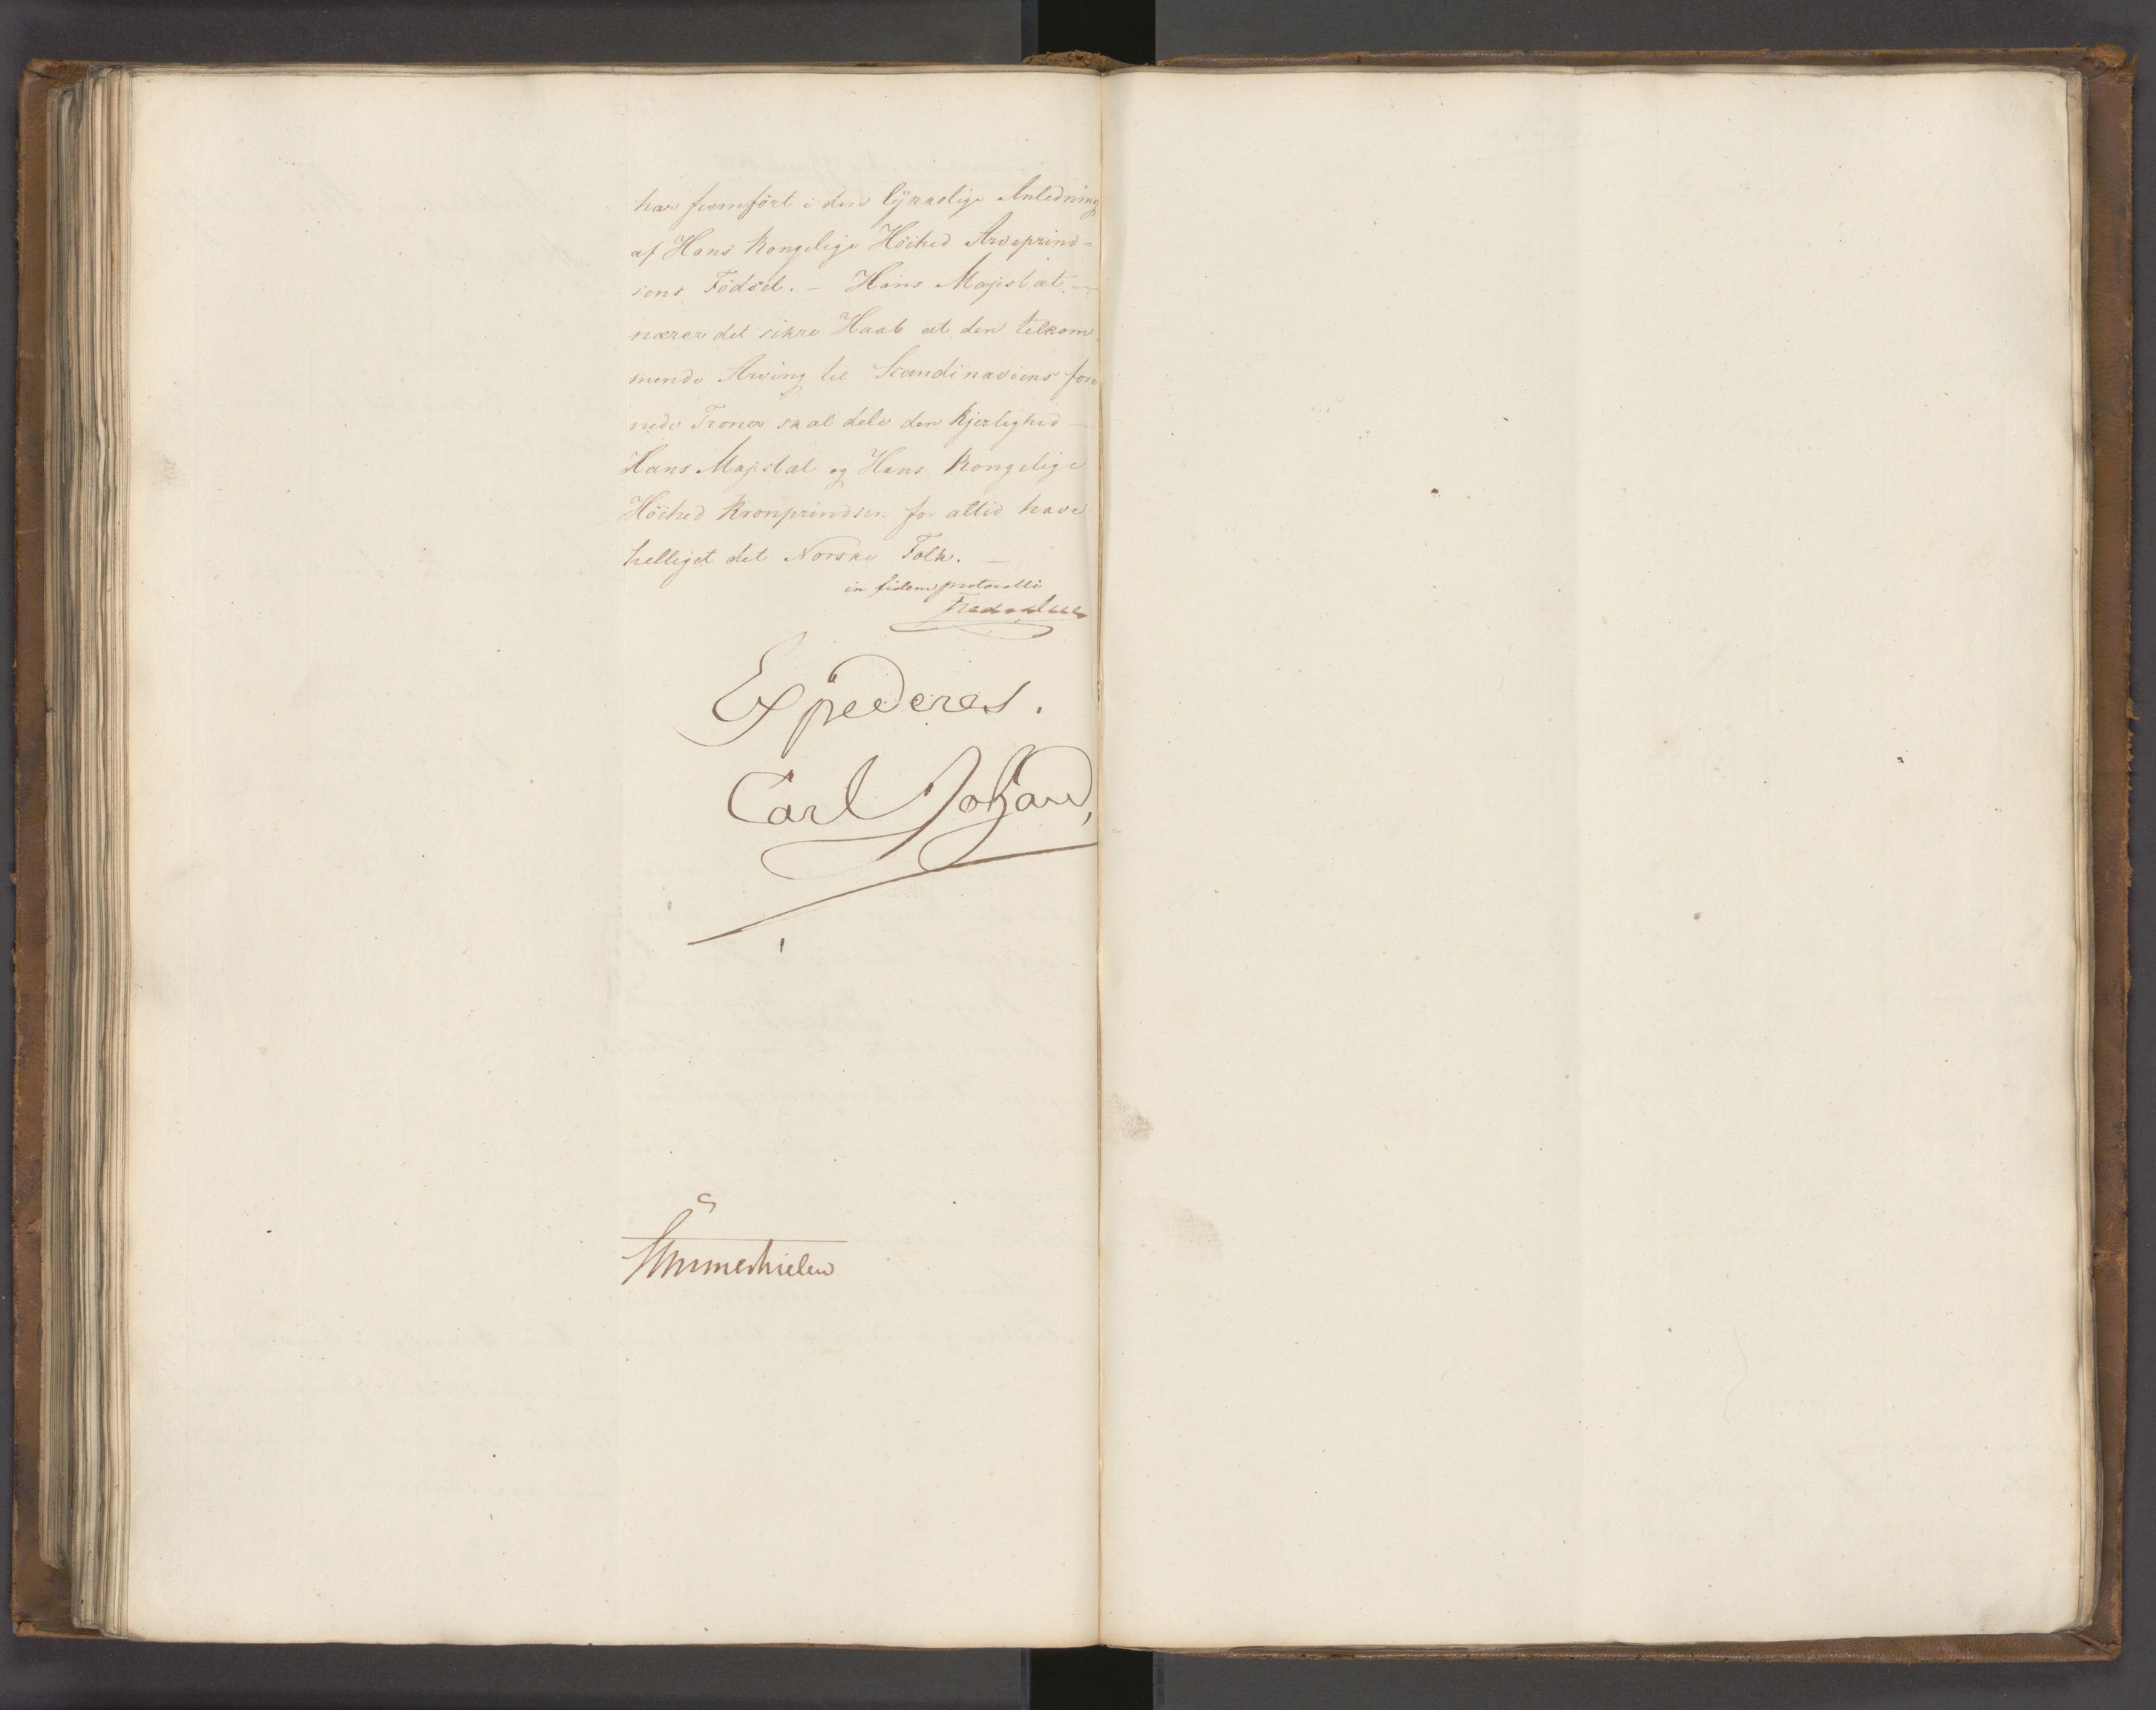 har fremført i den lÿkkelige Anledning
af Hans Kongelige Höihed Arveprind-
sens Födsel. — Hans Majestæt —
nærer det sikre Haab at den tilkom-
mende Arving til Scandinaviens fore
nede Troner skal dele den Kjerlighed —
Hans Majestæt og Hans Kongelige
Höihed Kronprindsen for altid have
helliget det Norske Folk. —
in fidem protocolli
Expederes.
Carl Johan